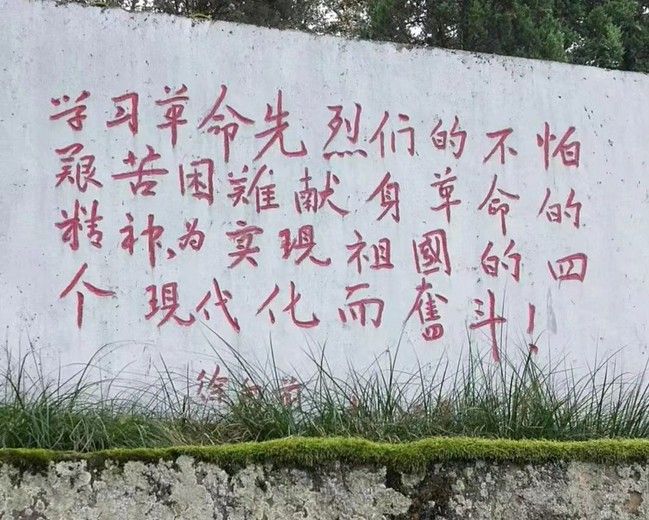 学习革命先烈们的不怕
艰苦困難献身革命的
精神,为实現祖國的四
个現代化而奮斗!
徐向前